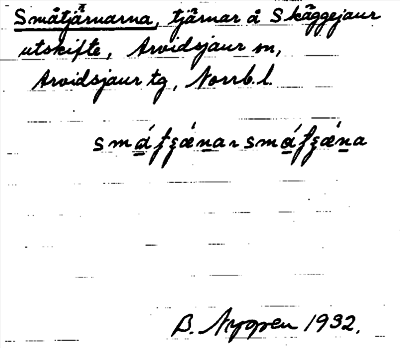 Småtjärnarna, tjärnar å Skäggejaur
utskifte, Arvidsjaur sn,
Arvidsjaur tg, Norrb.l.
B. Nygren 1932.